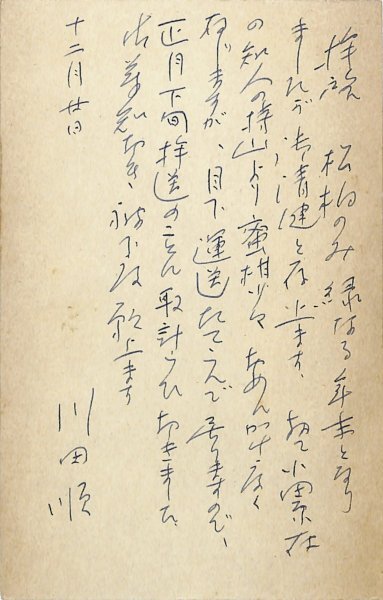 拝啓 松柏のみ緑なる年末となり
ましたが御清健と存上ます、扨て小田原在
の知人の持山より蜜柑少々おめにかけ度く
存じますが、目下運送たてこんで居りますので、
正月下旬拝送のことに取計らひおきました
御承知おき被下度願上ます
十二月廿日
川田順